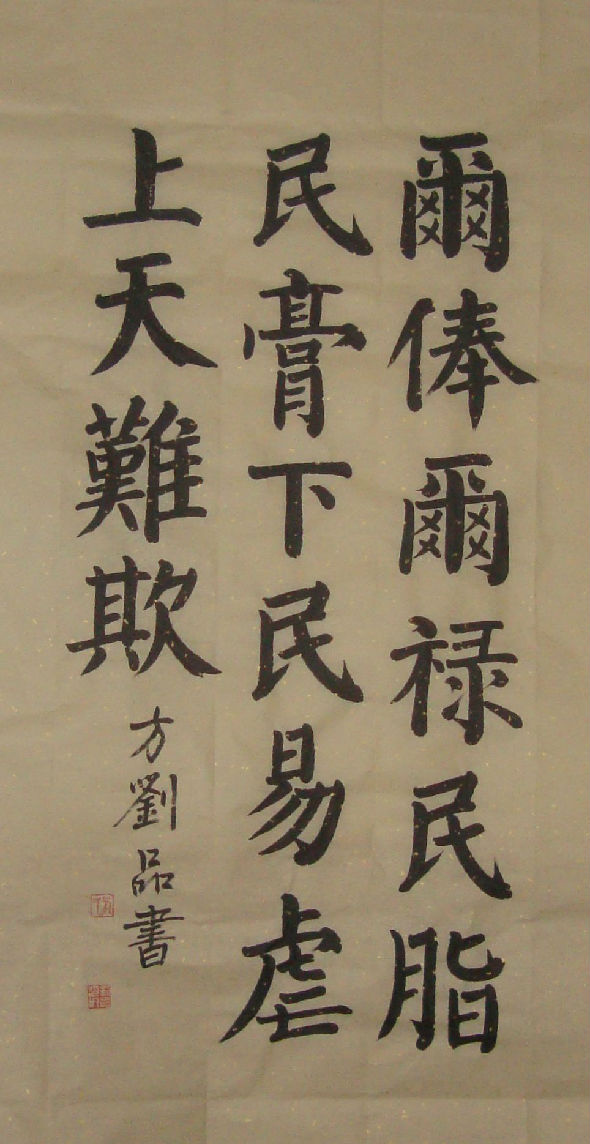 爾俸爾禄民脂
民膏下民易虐
上天難欺
方劉品書